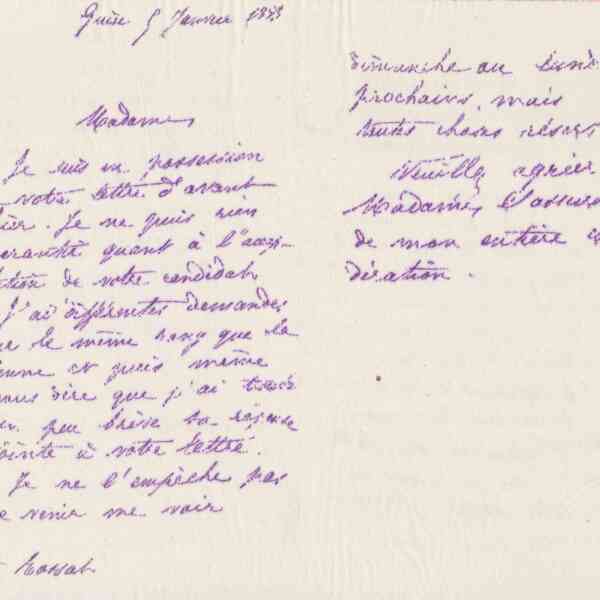 Guise 5 Janvier
Madame,
Je suis en possession
votre lettre d'avant
hier. Je ne puis rien
garantir quant à l'accep-
tation de votre candidat.
J'ai différentes demandes
le même rang que la
et puis même
vous dire que j'ai trouvé
un peu brève sa réponse
jointe à votre lettre.
Je ne l'empêche pas
de venir me voir
dimanche ou lundi
prochains, mais
toutes choses
Veuillez agréer
Madame, l'assurance
de mon entière
dération.